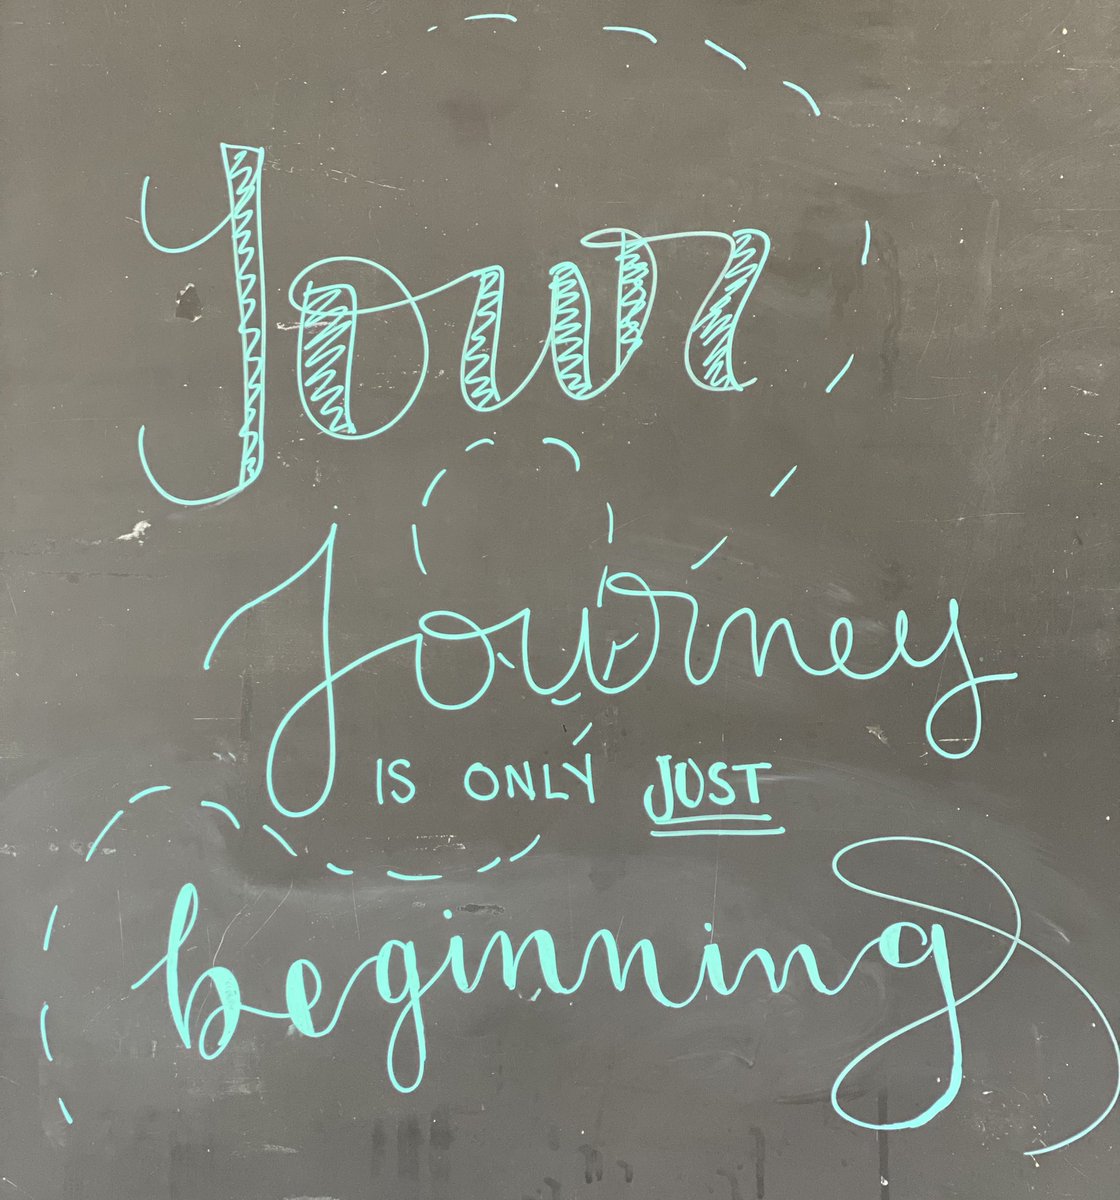 Your
Journey
IS ONLY JUST
beginning